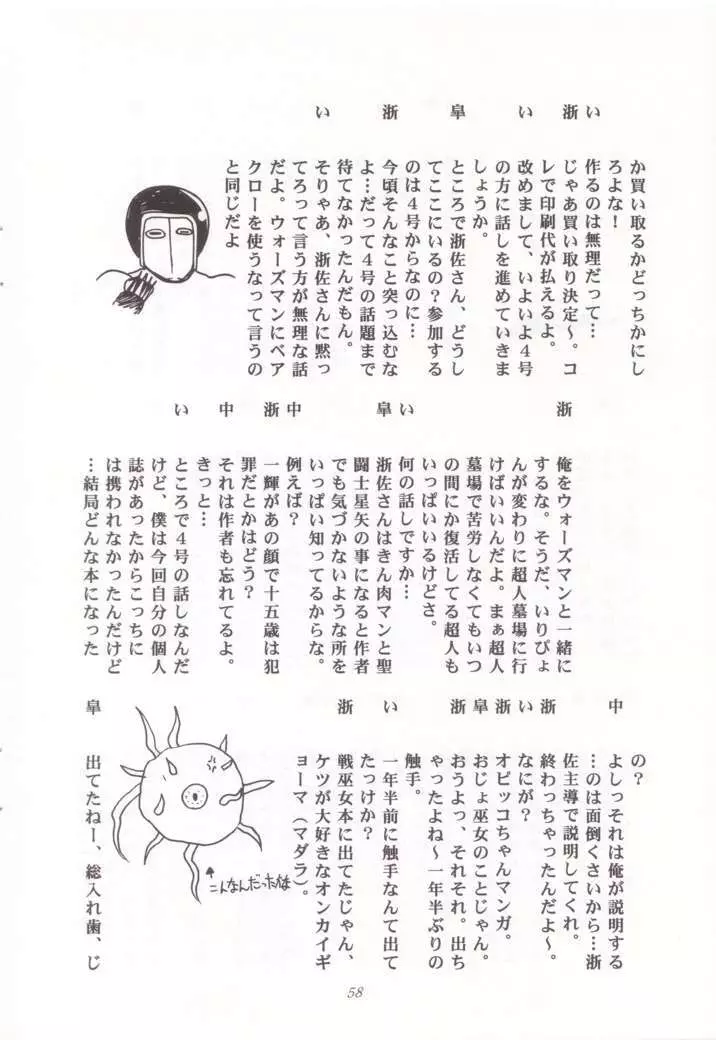 か買い取るかどっちかにし
ろよな！
い 作るのは無理だって…
浙 じゃあ買い取り決定〜。コ
レで印刷代が払えるよ。
い 改めまして、いよいよ４号
の方に話しを進めていきま
しょうか。
皐 ところで浙佐さん、どうし
てここにいるの？参加する
のは４号からなのに…
浙 今頃そんなこと突っ込むな
よ…だって４号の話題まで
待てなかったんだもん。
い そりゃあ、浙佐さんに黙っ
てろって言う方が無理な話
だよ。ウォーズマンにベア
クローを使うなって言うの
と同じだよ
浙 俺をウォーズマンと一緒に
するな。そうだ、いりぴょ
んが変わりに超人墓場に行
けばいいんだよ。まぁ超人
墓場で苦労しなくてもいつ
の間にか復活してる超人も
いっぱいいるけどさ。
い 何の話しですか…
皐 浙佐さんはきん肉マンと聖
闘士星矢の事になると作者
でも気づかないような所を
いっぱい知ってるからな。
中 例えば？
浙 一輝があの顔で十五歳は犯
罪だとかはどう？
中 それは作者も忘れてるよ。
きっと…
い ところで４号の話しなんだ
けど、僕は今回自分の個人
誌があったからこっちに
は携われなかったんだけど
…結局どんな本になった
の？
中 よしっそれは俺が説明する
…のは面倒くさいから…浙
佐主導で説明してくれ。
浙 終わっちゃったんだよ〜。
い なにが？
浙 オビッコちゃんマンガ。
皐 おじょ巫女のことじゃん。
浙 おうよっ、それそれ。出ち
ゃったよね〜一年半ぶりの
触手。
い 一年半前に触手なんて出て
たっけか？
浙 戦巫女本に出てたじゃん、
ケツが大好きなオンカイギ
ョーマ（マダラ）。
こんなんだったかな
皐 出てたねー、総入れ歯、じ
58